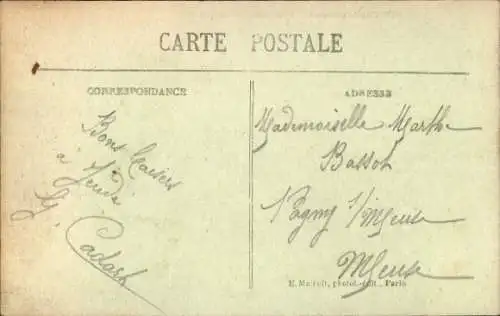 CARTE POSTALE
CORRESPONDANCE
Bons Baisers
à Jeudi
Cadart
ADRESSE
Mademoiselle Marthe
Bassot
Pagny s/Meuse
Meuse
photot.-édit., Paris